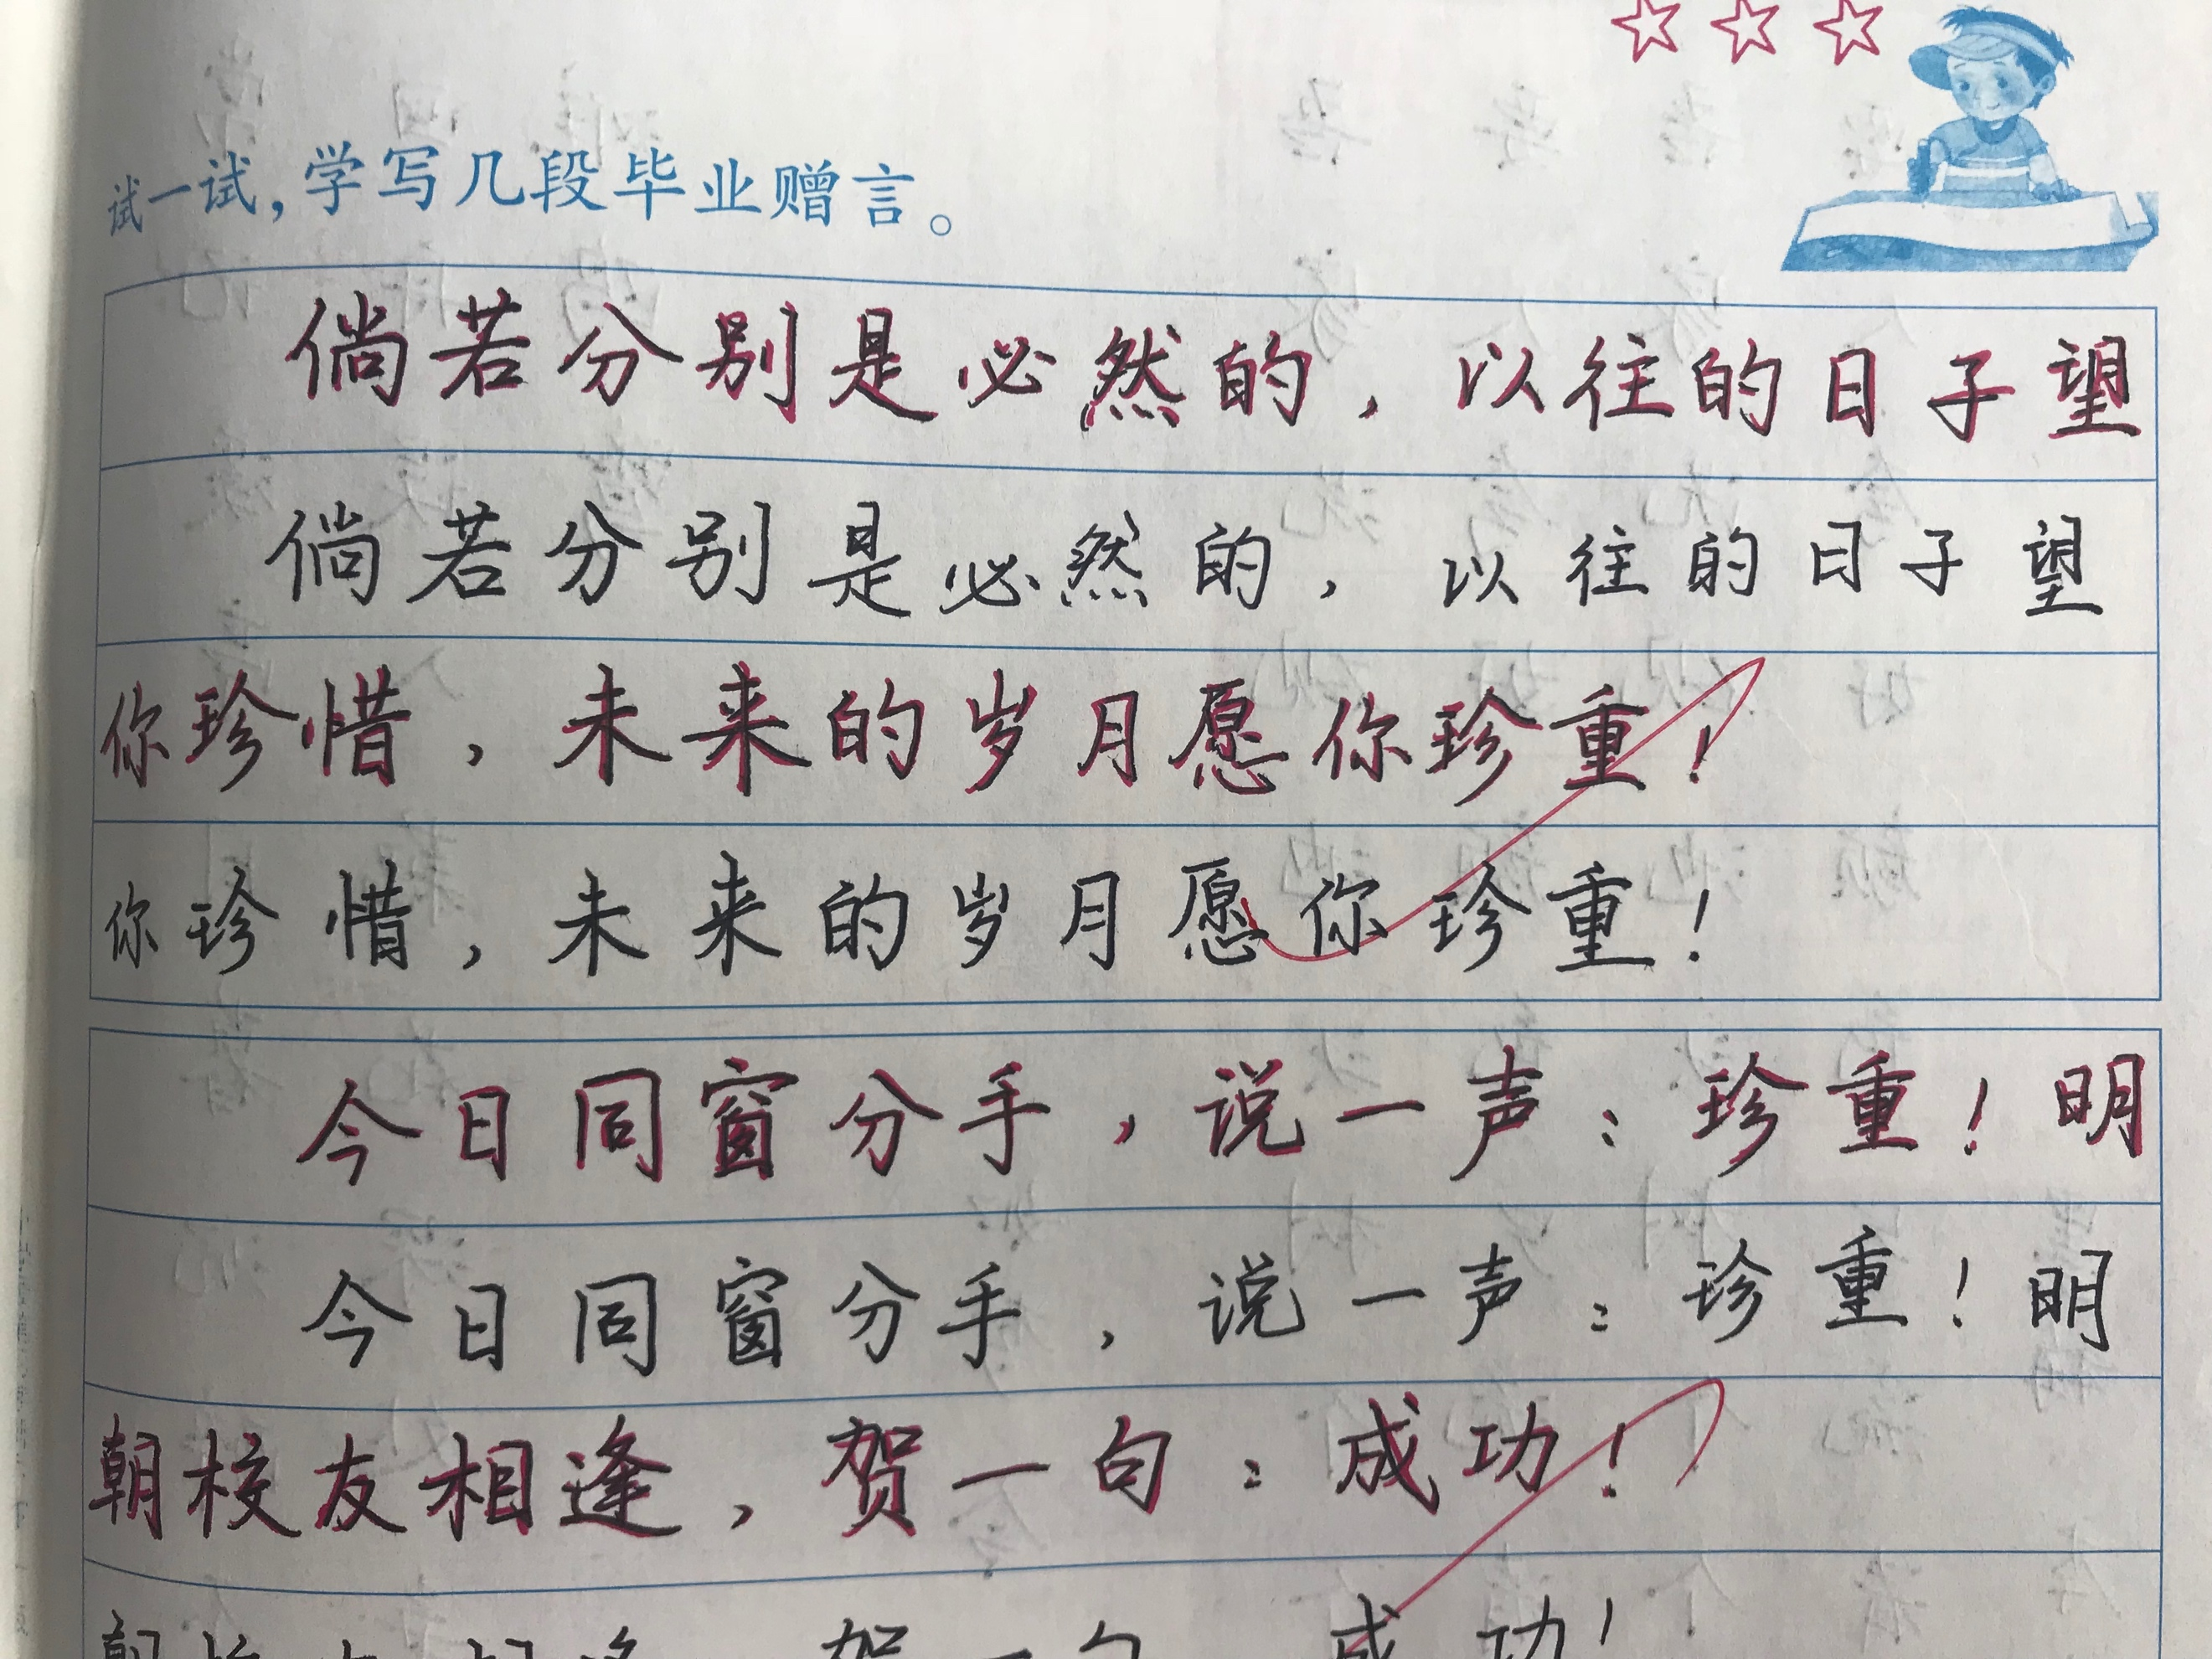 试一试，学写几段毕业赠言。
倘若分别是必然的，以往的日子望
倘若分别是必然的，以往的日子望
你珍惜，未来的岁月愿你珍重！
你珍惜，未来的岁月愿你珍重！
今日同窗分手，说一声：珍重！明
今日同窗分手，说一声：珍重！明
朝校友相逢，贺一句：成功！
朝校友相逢 贺一句 成功！